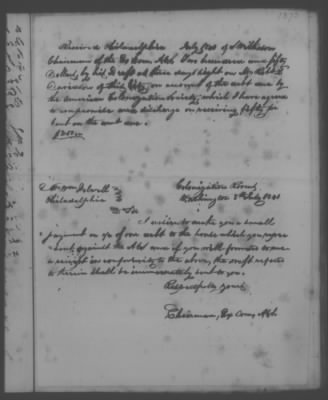 Received Philadelphia July 1841 of S Wilkeson
Chairman of the Ex Com ACS One hundred and fifty
Dollars by his Draft at three days sight on
of this City, on account of the debt due by
the American Colonization Society, which I have agreed
to compromise and discharge on receiving fifty per
cent on the amt due.
$150.00
Philadelphia
Colonization Rooms
Washington 8th July 1841
Dr Sir
I desire to make you a small
payment on a/c of one debt to the house which you repre
sent, against the ACS and if you will forward to me
a receipt in conformity to the above, the draft refered
to therein shall be immediately sent to you.
Respectfully yours
Chairman, Ex Com, ACS